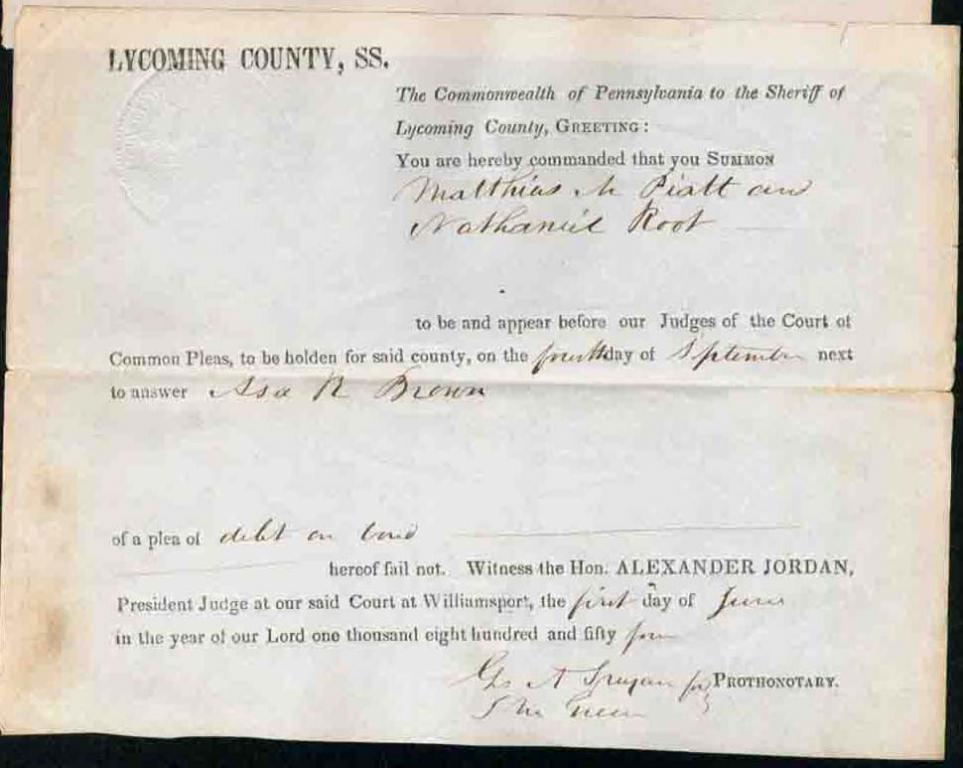 LYCOMING COUNTY, SS.
The Commonwealth of Pennsylvania to the Sheriff of
Lycoming County, GREETING:
You are hereby commanded that you SUMMON
Matthias M Piatt and
Nathaniel Root
to be and appear before our Judges of the Court of
Common Pleas, to be holden for said county, on the fourth day of September next
to answer Asa R Brown
of a plea of debt on bond
hereof fail not. Witness the Hon. ALEXANDER JORDAN,
President Judge at our said Court at Williamsport, the first day of June
in the year of our Lord one thousand eight hundred and fifty four
A for PROTHONOTARY.